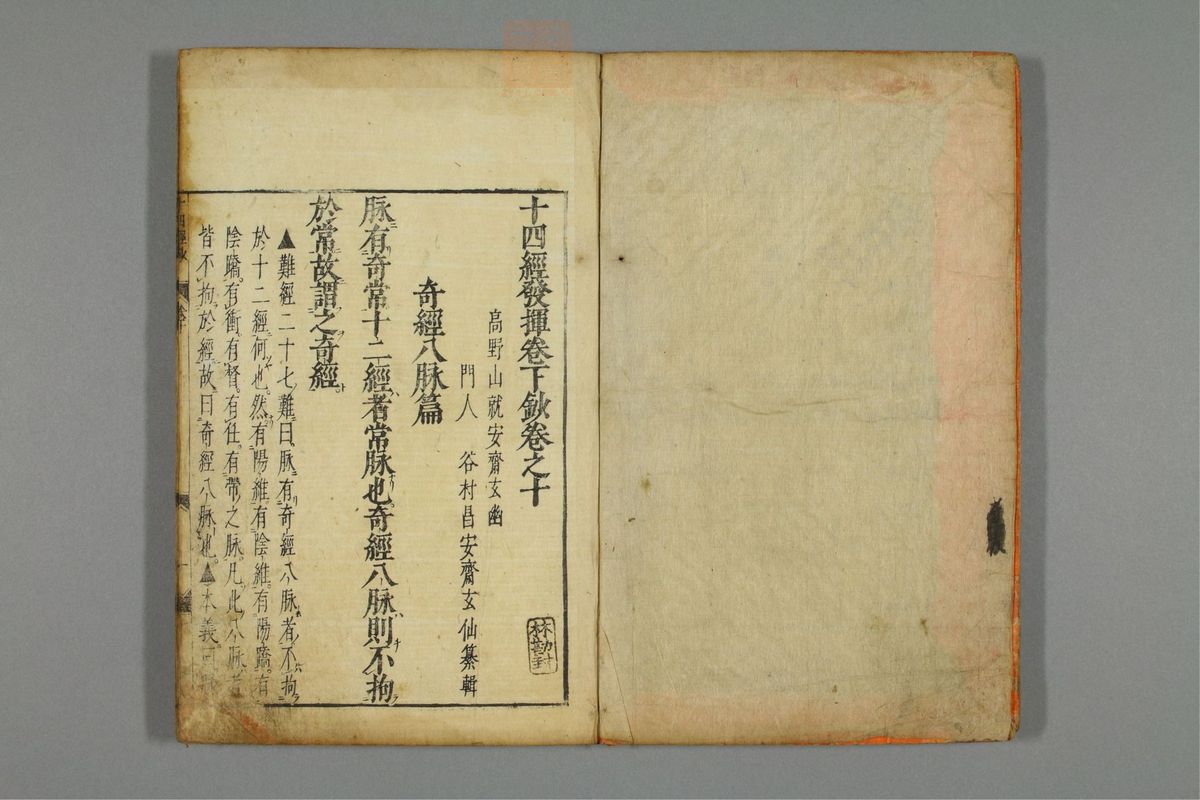 十四經發揮卷下鈔卷之十
高野山就安齋玄幽
門人 谷村昌安齋玄仙纂輯
奇經八脉篇
脉有奇常十二經者常脉也奇經八脉則不拘
於常故謂之奇經
▲難經二十七難曰脉有奇經八脉者不拘
於十二經何也然有陽維有陰維有陽蹻有
陰蹻有衝有督有任有帶之脉凡此八脉者
皆不拘於經故曰奇經八脉也▲本義曰脉